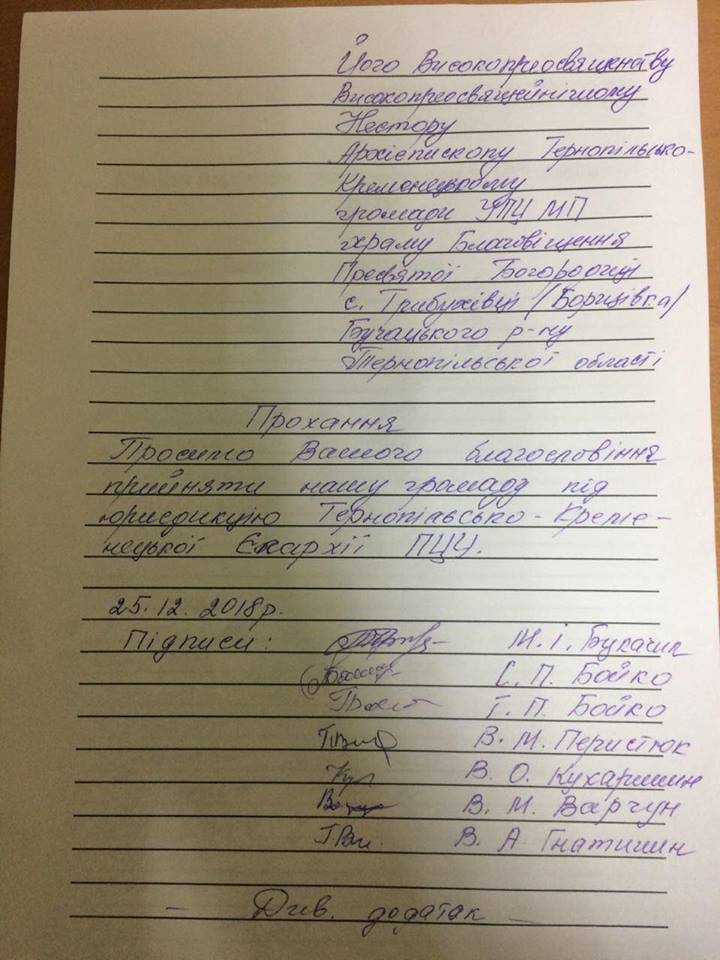 Його Високопреосвященству
Високопреосвященнішому
Нестору
Архієпископу Тернопільсько-
Кременецькому
громади УПЦ МП
храму Благовіщення
Пресвятої Богородиці
с. Трибухівці (Борщівка)
Бучацького р-ну
Тернопільської області
Прохання
Просимо Вашого благословіння
прийняти нашу громаду під
юрисдикцію Тернопільсько-Креме-
нецької Єпархії ПЦУ.
25.12.2018р.
Підписи: М. І. Букачик
С. П. Бойко
Г. П. Бойко
В. М. Перистюк
В. О. Кухаришин
В. М. Варчун
В. А. Гнатишин
- Див. додаток -